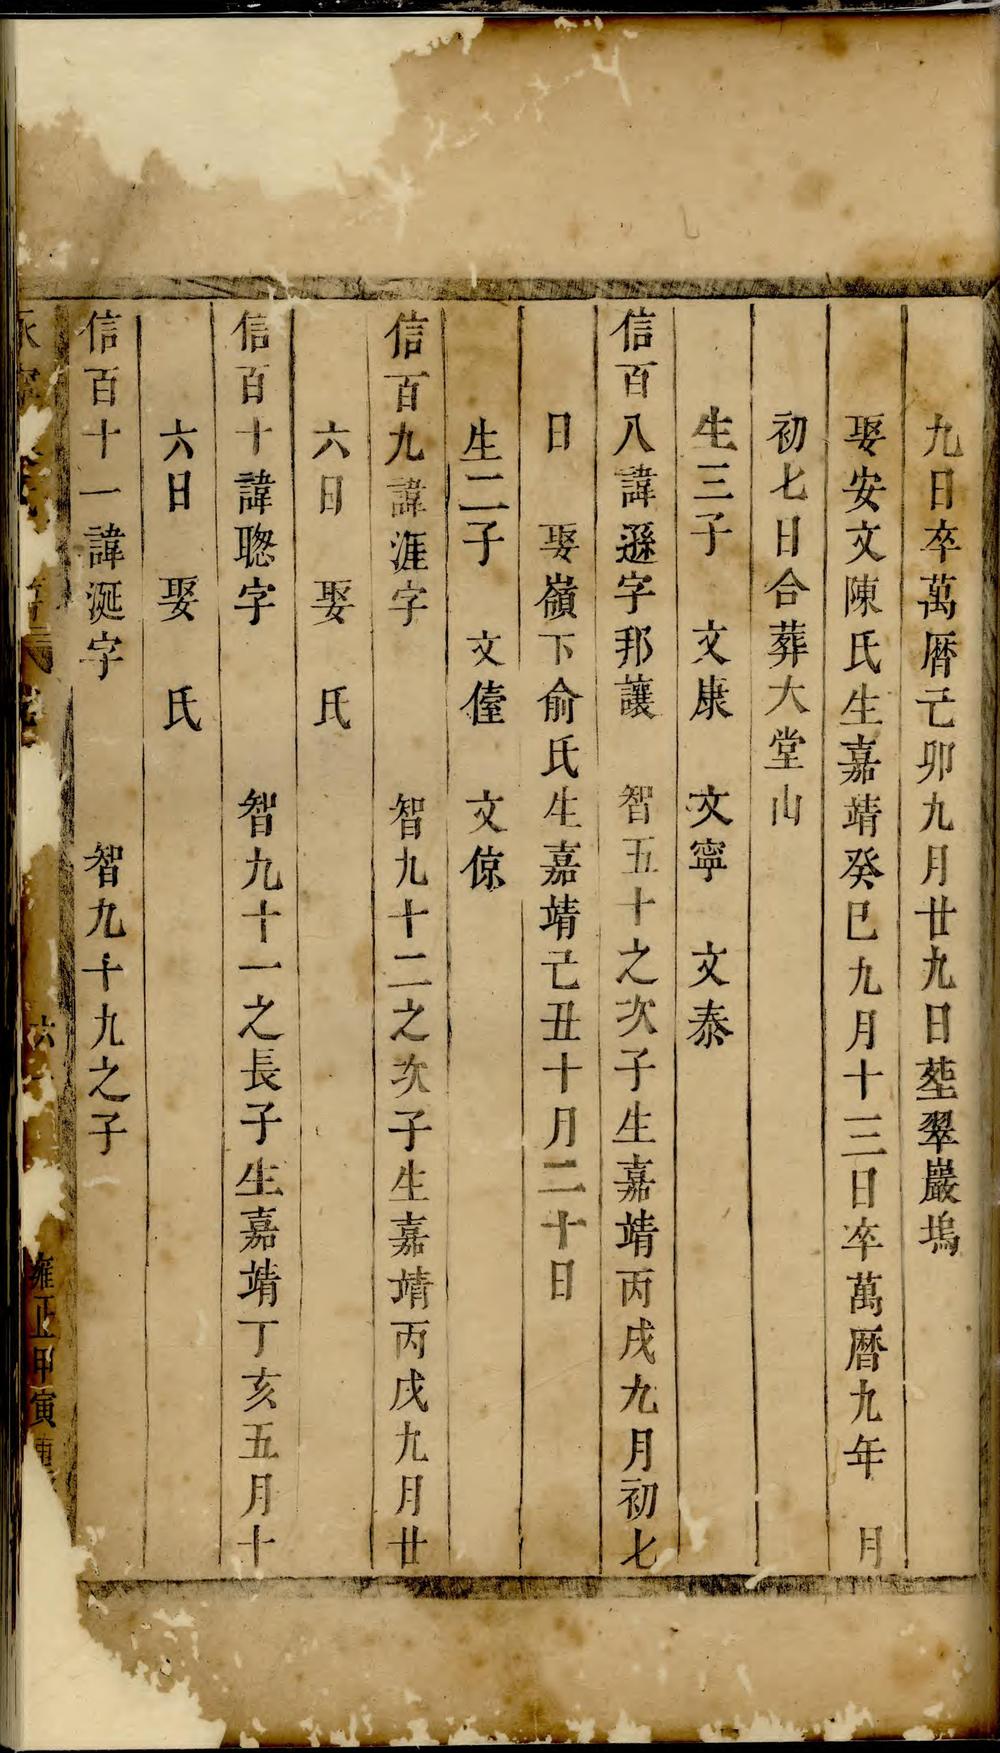 九日卒萬曆己卯九月廿九日塟翠巖塢
娶安文陳氏生嘉靖癸巳九月十三日卒萬曆九年　月
初七日合葬大堂山
生三子　文康　文寧　文泰
信百八諱遜字邦讓　智五十之次子生嘉靖丙戌九月初七
日　娶嶺下俞氏生嘉靖己丑十月二十日
生二子　文㒓　文倞
信百九諱涯字　智九十二之次子生嘉靖丙戌九月廿
六日　娶　氏
信百十諱聰字　智九十一之長子生嘉靖丁亥五月十
六日　娶　氏
信百十一諱涎字　智九十九之子
六　雍正甲寅